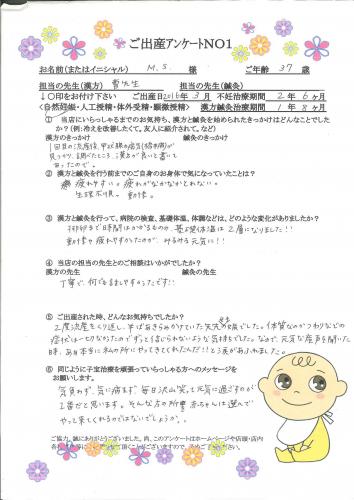 ご出産アンケートNO1
お名前(またはイニシャル) M.S. 様 ご年齢 37 歳
担当の先生(漢方) 曹先生 担当の先生(鍼灸)
↓○印をお付け下さい ご出産日2016年3月 不妊治療期間 2年6ヶ月
<自然妊娠・人工授精・体外受精・顕微授精> 漢方鍼灸治療期間 1年8ヶ月
① 当店にいらっしゃるまでのお気持ち、漢方と鍼灸を始められたきっかけはどんなことでした
か?(例:冷えを改善したくて、友人に紹介されて、など)
漢方のきっかけ 鍼灸のきっかけ
1回目の流産後、甲状腺の病気(橋本病)が
見つかり、調べたところ漢方が良いと書いて
あったので。
② 漢方と鍼灸を行う前までのご自身のお身体で気になっていたことは?
疲れやすい。疲れがなかなかとれない。
生理不順。動悸。
③ 漢方と鍼灸を行って、病院の検査、基礎体温、体調などは、どのような変化がありましたか?
排卵まで日時間はかかるものの、基礎体温は2層になりました!!
動悸や疲れやすかったのが、みるみる元気に!!
④ 当店の担当の先生とのご相談はいかがでしたか?
漢方の先生 鍼灸の先生
丁寧で、何でも話しやすかったです!!
⑤ ご出産された時、どんなお気持ちでしたか?
2度流産をくり返し、半ばあきらめかけていた矢先の妊娠でした。体質なのかつわりなどの
症状は一切なかったのでずっと信じられないような気持ちでした。なので、元気な産声を聞いた
時、あぁ本当に私の所にやってきてくれたんだ!!と涙があふれました。
⑥ 同じように子宝治療を頑張っていらっしゃる方へのメッセージを
お願いします。
気負わず、気に病まず、毎日沢山笑って元気に過ごすのが
1番かと思います。そんな方の所に赤ちゃんは選んで
やって来てくれるのではないでしょうか。
ご協力、誠にありがとうございました。尚、このアンケートはホームページや店頭・店内